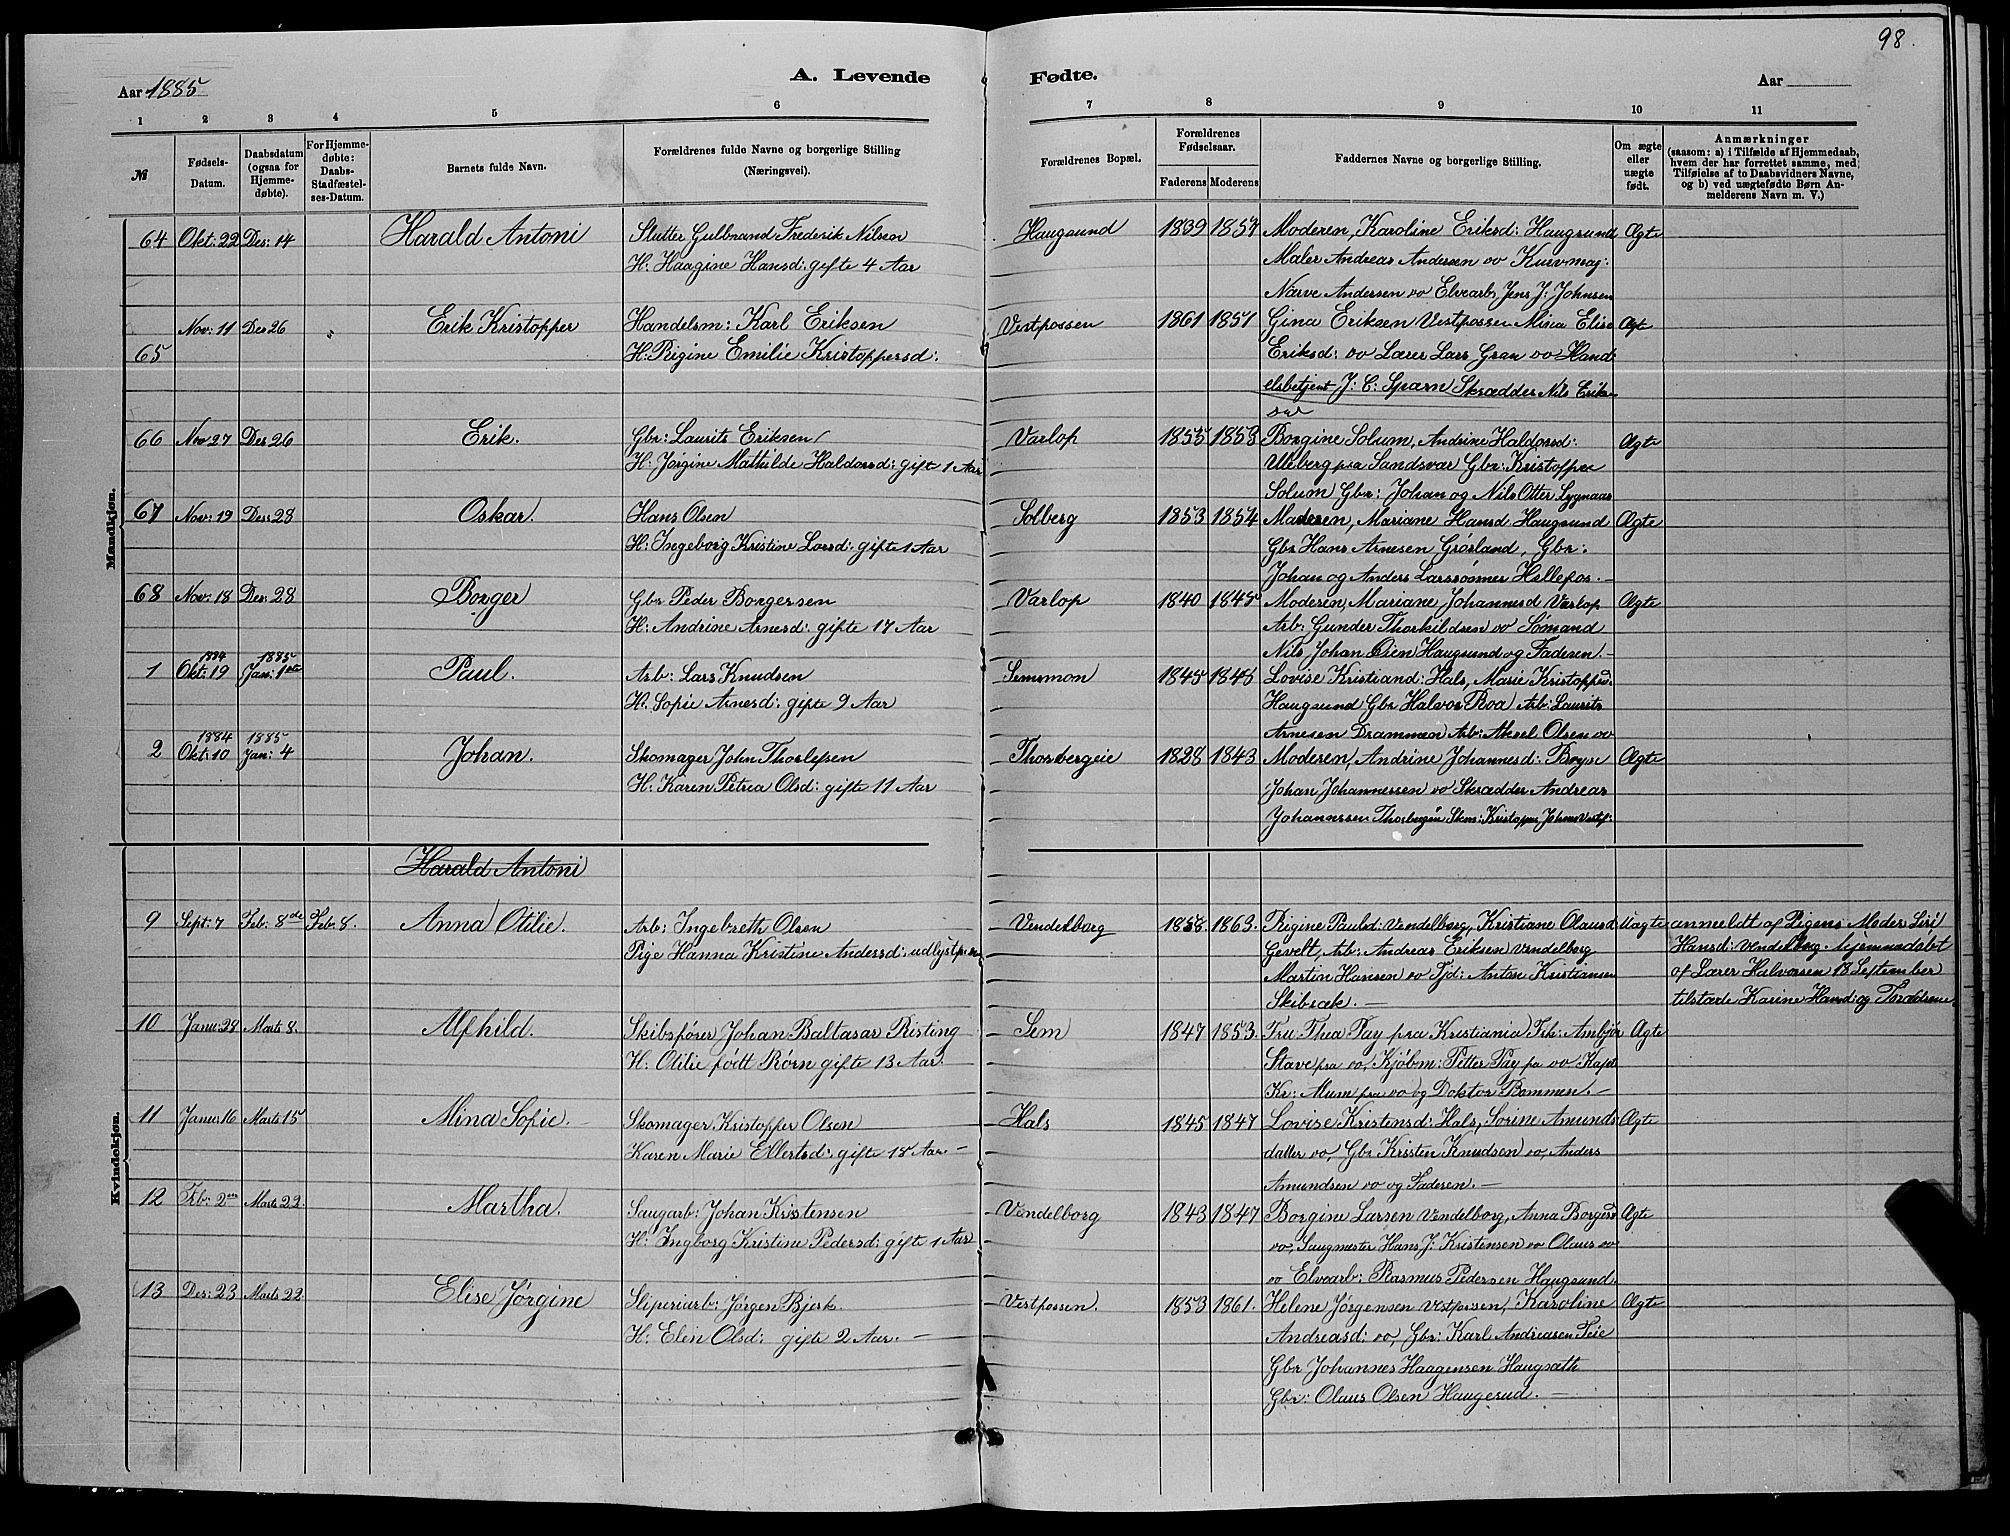 98.
A. Levende Fødte.
Aar 1885
Aar
1 2 3 4 5 6 7 8 9 10 11
№
Fødsels-Datum.
Daabsdatum (ogsaa for Hjemme-døbte).
For Hjemme-døbte: Daabs-Stadfæstel-ses-Datum.
Barnets fulde Navn.
Forældrenes fulde Navne og borgerlige Stilling (Næringsvei).
Forældrenes Bopæl.
Forældrenes Fødselsaar.
Faderens Moderens
Faddernes Navne og borgerlige Stilling.
Om ægte eller uægte født.
Anmærkninger
(saasom: a) i Tilfælde af Hjemmedaab, hvem der har forrettet samme, med Tilføielse af to Daabsvidners Navne, og b) ved uægtefødte Børn An-melderens Navn m. V.)
Mandkjøn.
64 Okt: 22 Des: 14 Harald Antoni Slutter Gulbrand Frederik Nilsen Haugsund 1839 1857 Moderen, Karoline Eriksd: Haugsund Ægte
H: Haagine Hansd: gifte 4 Aar Maler Andreas Andersen oo Kurvmag:
Narve Andersen oo Elvearb, Jens J: Johnsen
Nov: 11 Des 26 " Erik Kristopper Handelsm: Karl Eriksen Vestfossen 1861 1857 Gina Eriksen Vestfossen Mina Elise Ægte
65 H: Rigine Emilie Kristoppersd: Eriksd: oo Lærer Lars Gran oo Hand
elsbetjent J: C: Sparn Skrædder Nils Erik-
sen
66 Nov 27 Des 26 Erik. Gbr: Laurits Eriksen Varlop 1855 1853 Borgine Solum, Andrine Haldorsd: Ægte
H: Jørgine Mathilde Haldorsd: gift 1 Aar Ulleberg fra Sandsvær Gbr: Kristoffer
Solum Gbr: Johan og Nils Otter Lygnaas
67 Nov: 19 Des: 28 Oskar. Hans Olsen Solberg 1853 1854 Moderen, Mariane Hansd Haugsund Ægte
H: Ingeborg Kristine Larsd: gifte 1 Aar Gbr Hans Arnesen Grøsland, Gbr:
Johan og Anders Larssønner Hellefos. —
68 Nov: 18 Des: 28 Borger Gbr Peder Borgersen Varlop 1840 1845 Moderen, Mariane Johannesd Varlop Ægte
H: Andrine Arnesd: gifte 17 Aar Arb: Gunder Thorkildsen oo Sømand
Nils Johan Oien Haugsund og Faderen. —
1 1884 Okt: 19 1885 Jan: 1ste Paul. Arb: Lars Knudsen Semsmon 1845 1845 Lovise Kristiand: Hals, Marie Kristoppersd.
H: Sofie Arnesd: gifte 9 Aar Haugsund Gbr Halvor Roa Arb: Laurits
Arnesen Drammen Arb: Aksel Olsen oo
2 1884 Okt: 10 1885 Jan: 4 Johan. Skomager John Thorlefsen Thorsbergeie 1828 1843 Moderen, Andrine Johannesd: Ægte
H: Karen Petrea Olsd: gifte 11 Aar Johan Johannessen oo Skrædder Andreas
Johannessen Skom: Kristoffer
Kvindekjøn.
Harald Antoni
9 Sept: 7 Feb: 8de Feb: 8. Anna Otilie. Arb: Ingebreth Olsen Vendelborg 1858. 1863. Rigine Paulsd: Vendelborg, Kristiane Olausd Uægte anmeldt af Pigens Moder Siri
Pige Hanna Kristine Andersd: Gevelt, Arb: Andreas Eriksen Vendelborg Hansd: Vendelborg. hjemmedøbt
Martin Hansen oo Tjd: Anton Kristiansen af Lærer Halvorsen 18 September
Skibræk. — tilstæde Karine Hansd: og
10 Janu: 28 Marts 8. Alfhild. Skibsfører Johan Baltasar Risting Sem 1847 1853. Fru Thea Pay fra Kristiania Frk: Ambjør Ægte
H: Otilie født Rørn gifte 13 Aar. Stave fra oo, Kjøbm: Petter Pay fra oo Kapt
Kr: Mum fra oo og Doktor Bommen. —
11 Janu: 16 Marts 15 Mina Sofie. Skomager Kristopper Olsen Hals 1845 1847 Lovise Kristensd: Hals, Sorine Amunds Ægte
Karen Marie Ellertsd: gifte 18 Aar. — datter oo, Gbr Kristen Knudsen oo, Anders
Amundsen oo og Faderen. —
12 Feb: 2den Marts 22. Martha. Saugarb: Johan Kristensen Vendelborg 1843 1847 Borgine Larsen Vendelborg, Anna Borgersd Ægte
H: Ingborg Kristine Pedersd: gifte 1 Aar oo, Saugmester Hans J: Kristensen oo Olaus oo
oo Elvearb: Rasmus Pedersen Haugsund.
13 Des: 23 Marts 22 Elise Jørgine Sliperiarb: Jørgen Bjerk. Vestfossen. 1853 1861. Helene Jørgensen Vestfossen, Karoline Ægte
H: Elin Olsd: gifte 2 Aar. — Andreasd: oo, Gbr: Karl Andreasen Teie
Gbr Johannes Haagensen Haugsæth
Gbr: Olaus Olsen Haugerud. —